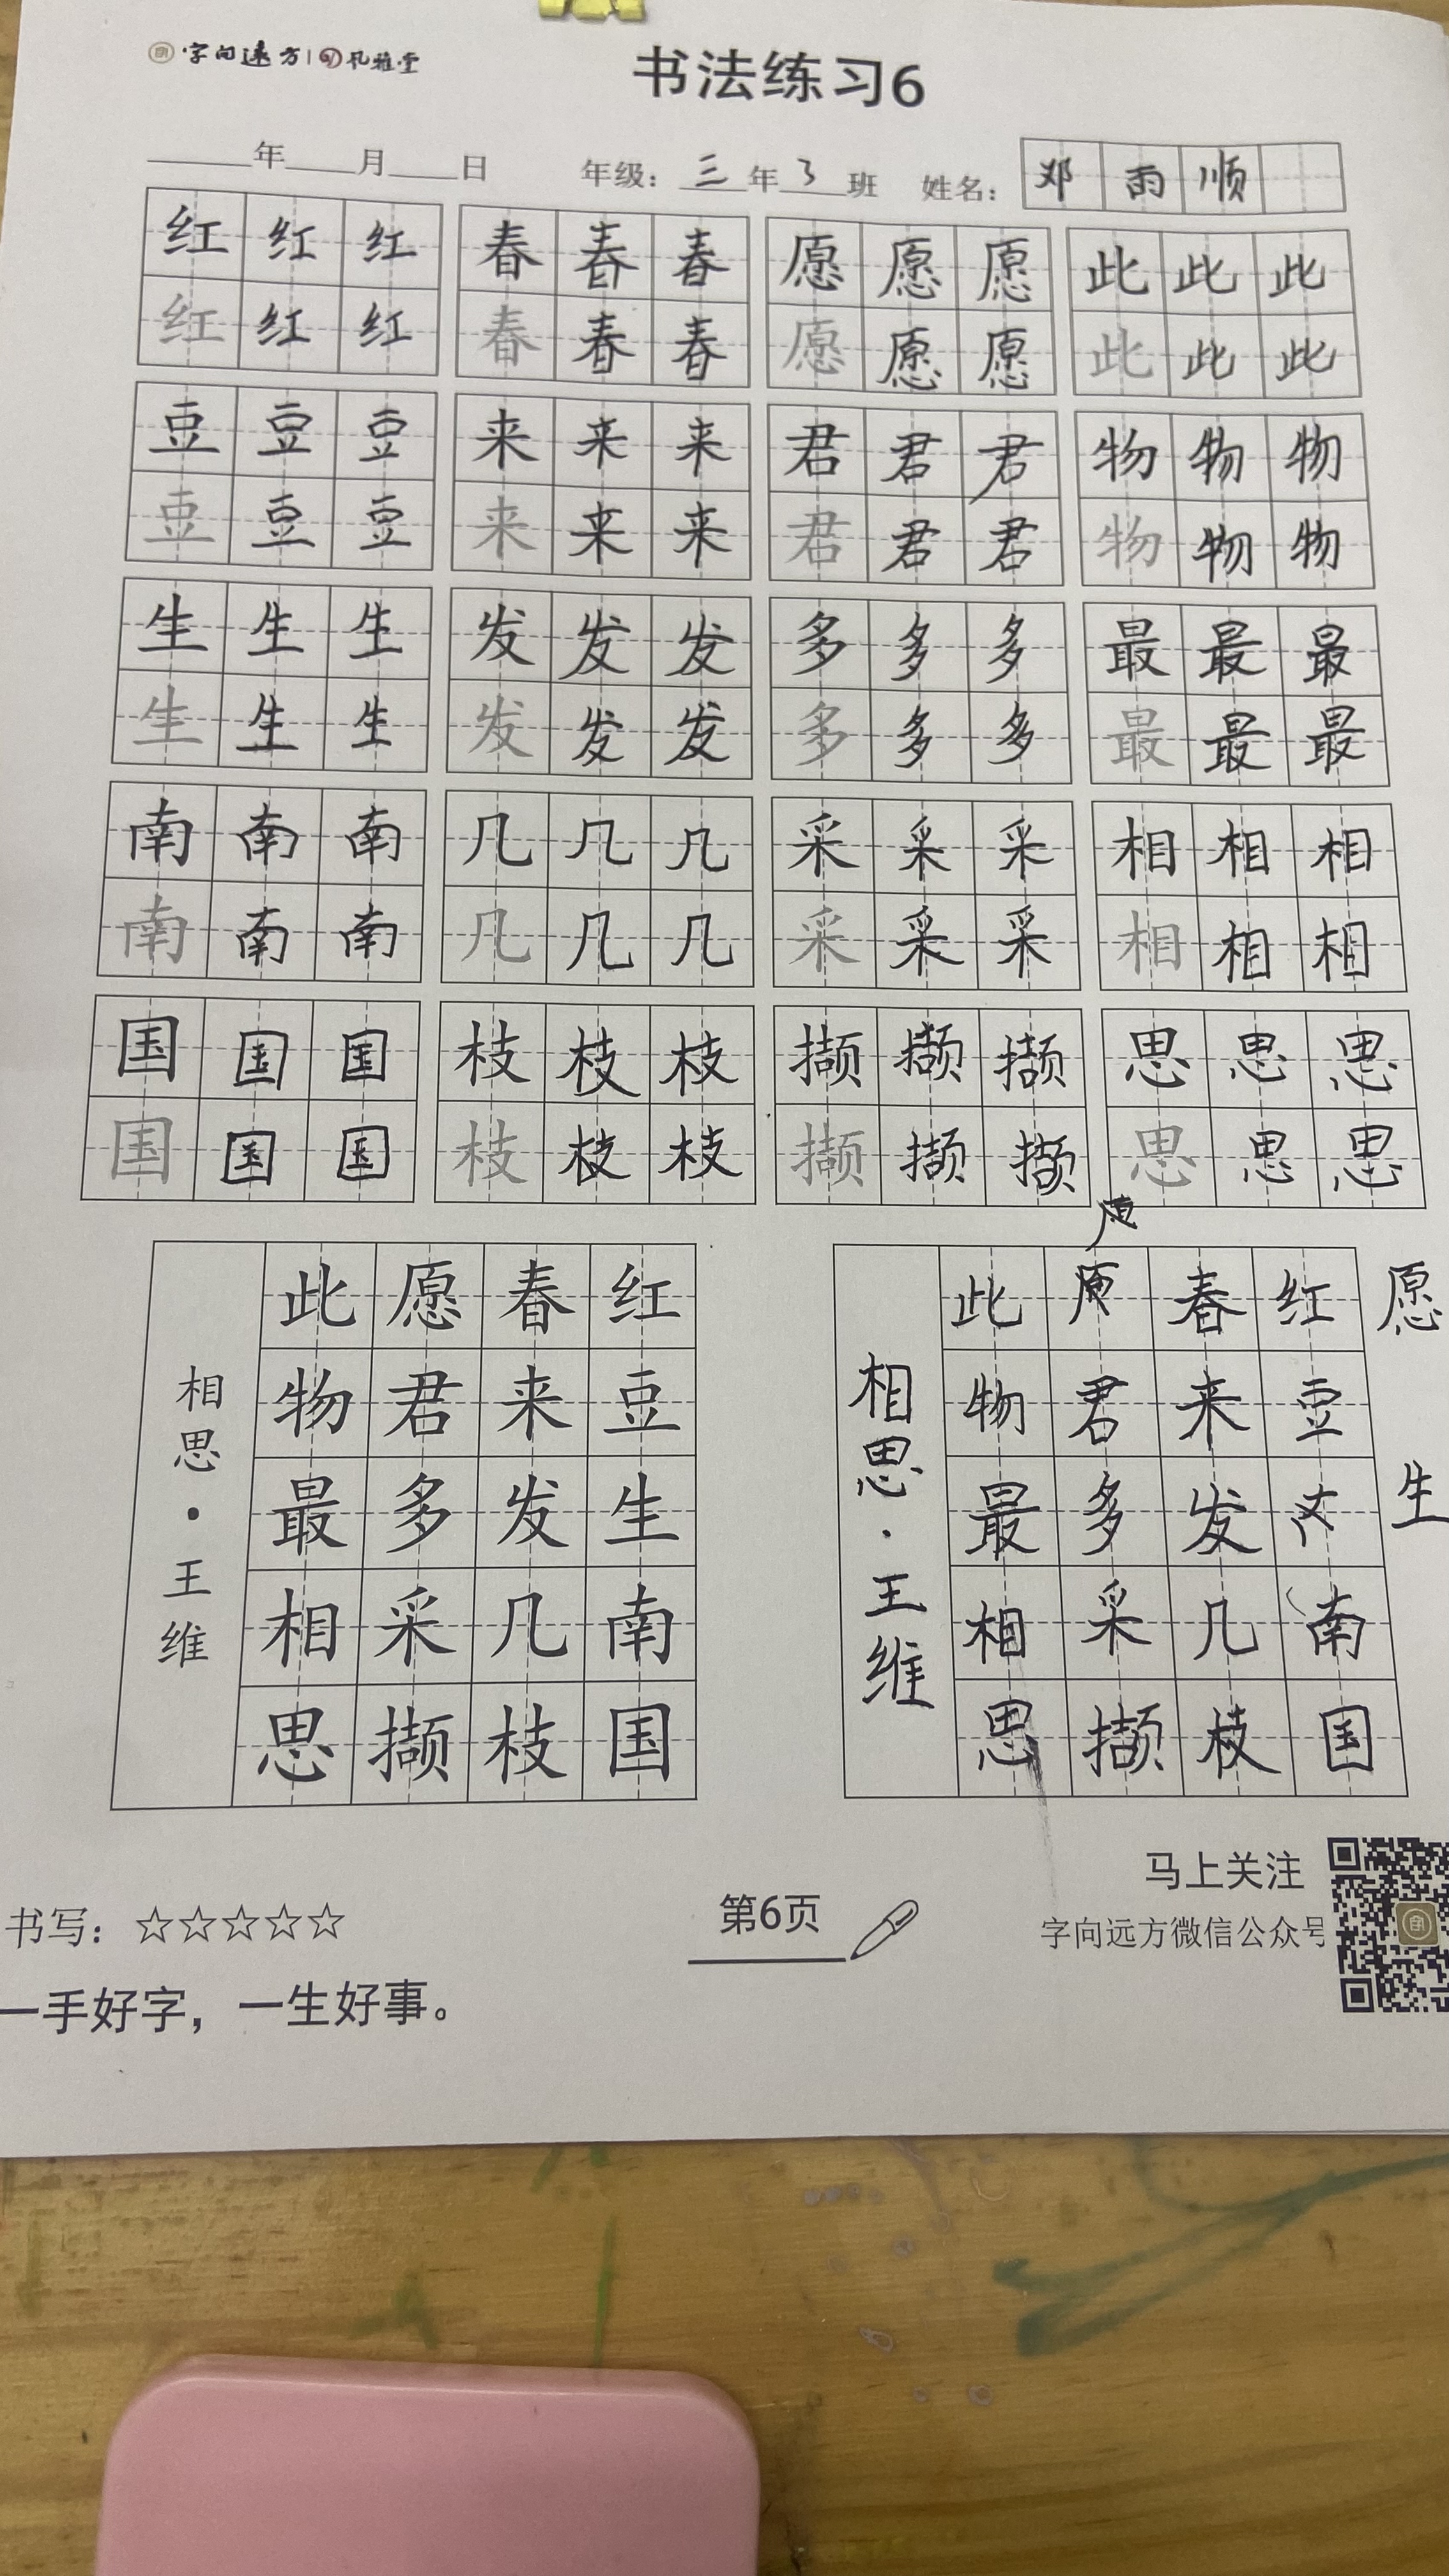 字向远方 孔雅堂
书法练习6
年 月 日 年级：三年3班 姓名：邓雨顺
红红红 春春春 愿愿愿 此此此
红红红 春春春 愿愿愿 此此此
豆豆豆 来来来 君君君 物物物
豆豆豆 来来来 君君君 物物物
生生生 发发发 多多多 最最最
生生生 发发发 多多多 最最最
南南南 几几几 采采采 相相相
南南南 几几几 采采采 相相相
国国国 枝枝枝 撷撷撷 思思思
国国国 枝枝枝 撷撷撷 思思思
红豆生南国
春来发几枝
愿君多采撷
此物最相思
相思·王维
愿 生
红豆 南国
春来发几枝
君多采撷
此物最相思
相思·王维
书写：☆☆☆☆☆
第6页
马上关注
字向远方微信公众号
一手好字，一生好事。